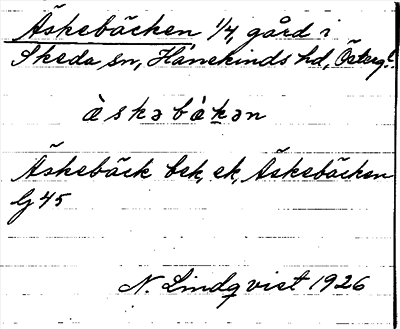 Äskebäcken 1/4 gård i
Skeda sn, Hanekinds hd, Österg.
ä̀skəbä́kən
Äskebäck bek, ek, Äskebäcken
G 45
N. Lindqvist 1926